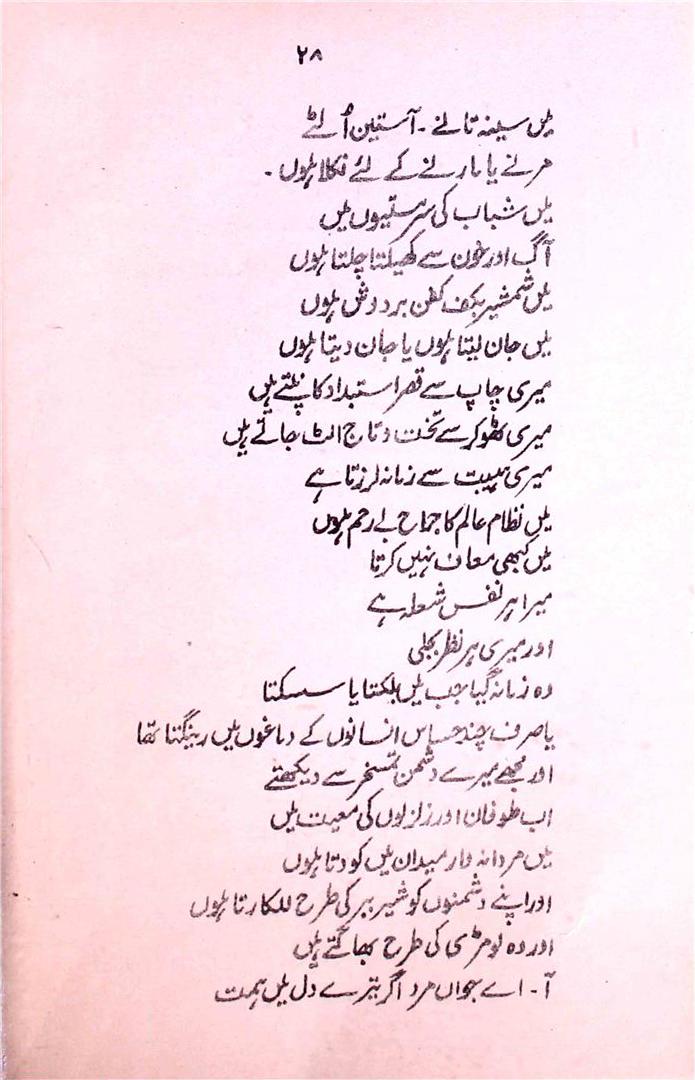 ۲۸
میں سینہ تانے ۔ آستین اُلٹے
مرنے یا مارنے کے لئے نکلا ہوں ۔
میں شباب کی سرمستیوں میں
آگ اور خون سے کھیلتا چلتا ہوں
میں شمشیر بکف کفن بردوش ہوں
میں جان لیتا ہوں یا جان دیتا ہوں
میری چاپ سے قصر استبداد کانپتے ہیں
میری ٹھوکر سے تخت و تاج الٹ جاتے ہیں
میری ہیبت سے زمانہ لرزتا ہے
میں نظام عالم کا جراح بے رحم ہوں
میں کبھی معاف نہیں کرتا
میرا ہر نفس شعلہ ہے
اور میری ہر نظر بجلی
وہ زمانہ گیا جب میں بلکتا یا سسکتا
یا صرف چند حساس انسانوں کے دماغوں میں رینگتا تھا
اور مجھے میرے دشمن تمسخر سے دیکھتے
اب طوفان اور زلزلوں کی معیت میں
میں مردانہ وار میدان میں کودتا ہوں
اور اپنے دشمنوں کو شیر ببر کی طرح للکارتا ہوں
اور وہ لومڑی کی طرح بھاگتے ہیں
آ ۔ اے جواں مرد اگر تیرے دل میں ہمت